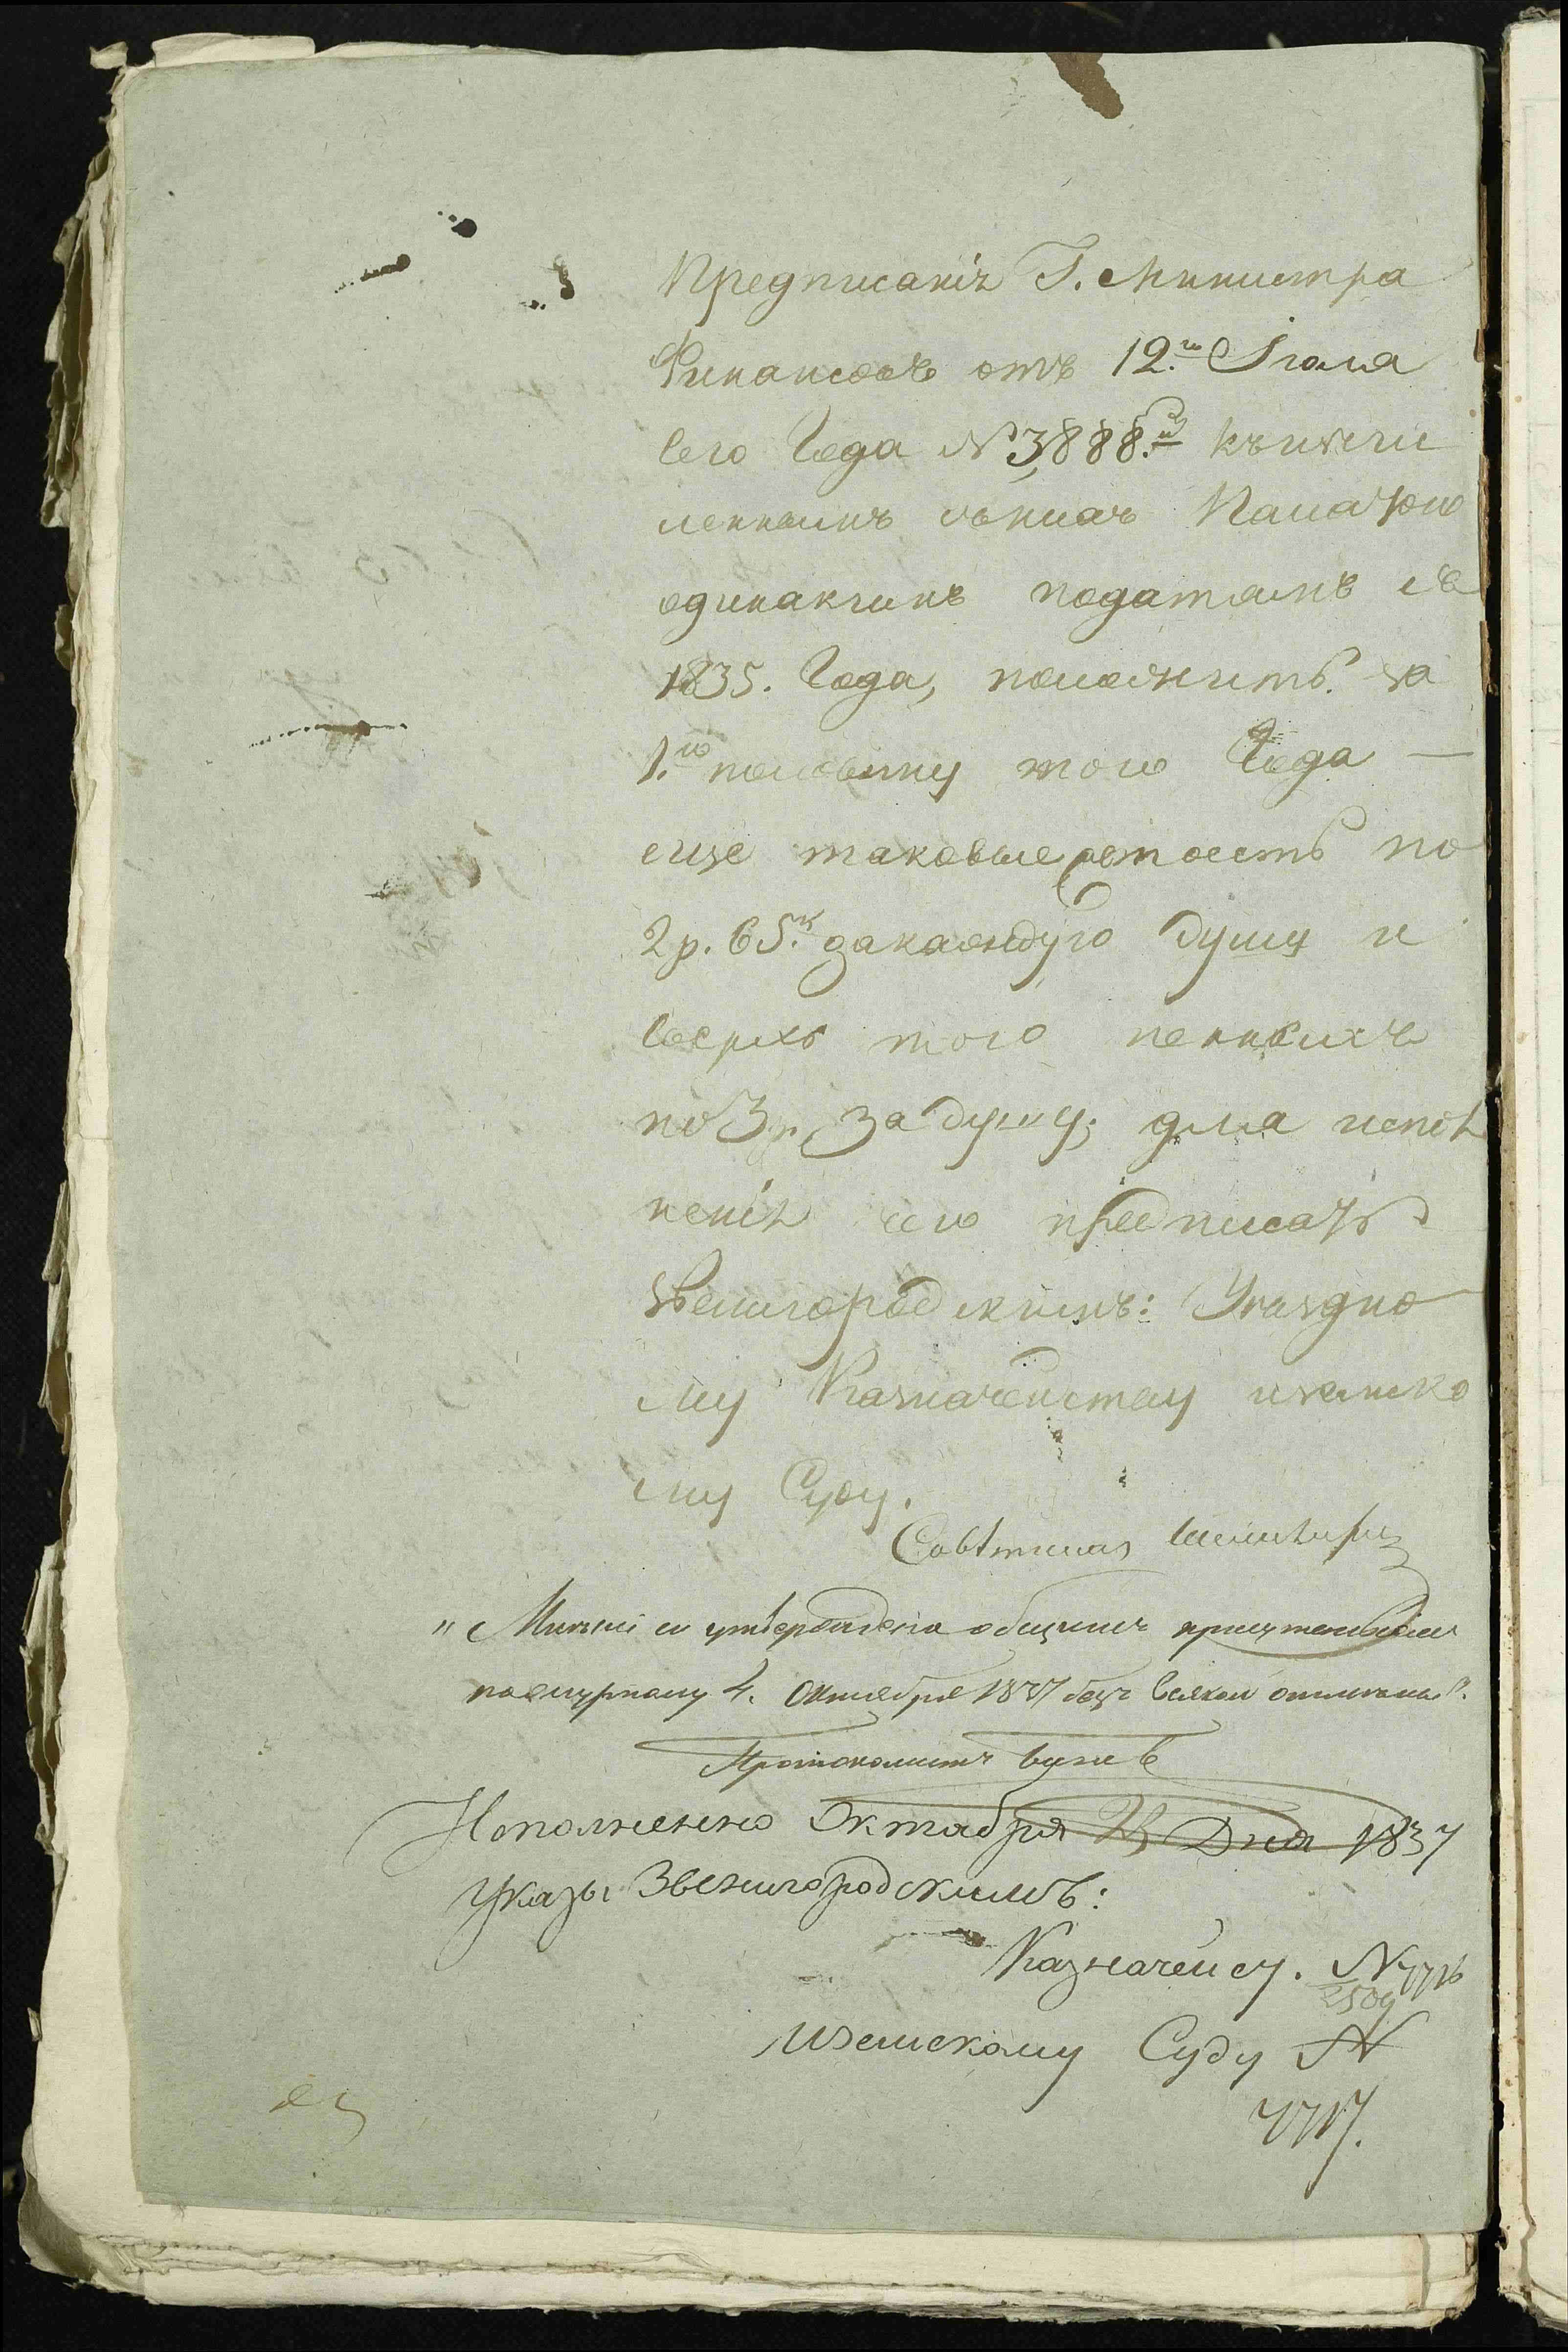 Предписанія Г. Министра
Финансовъ отъ 12.го Іюля
сего Года № 3888.й къ исчи
леннымъ съ нихъ Палатою
одинакимъ податямъ съ
1835. Года, положить за
1.ю половину того Года —
еще таковые то есть по
2 р. 65.к за каждую душу и
сверхъ того пенныхъ
по 3 р. за душу; для испол
ненія чего предписать
Звенигородскимъ: Уѣздно
му Казначейству и земско
му Суду.
Совѣтникъ
„Мнѣніе утверждено общимъ присутствіемъ
по журналу 4. Октября 1837 безъ всякой отмѣны".
Протоколистъ
Исполненно Октября Дня 1837
Указы Звенигородскимъ:
Казначейсу. №
2509
и земскому Суду №